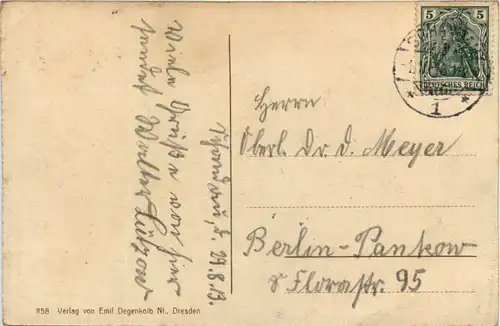 5 5
DEUTSCHES REICH
1
Schandau, d. 29.8.13.
Viele Grüße von hier
sendet Walter Lützow
Herrn
Oberl. Dr. d. Meyer
Berlin-Pankow
Florastr. 95
1158 Verlag von Emil Degenkolb Nf., Dresden